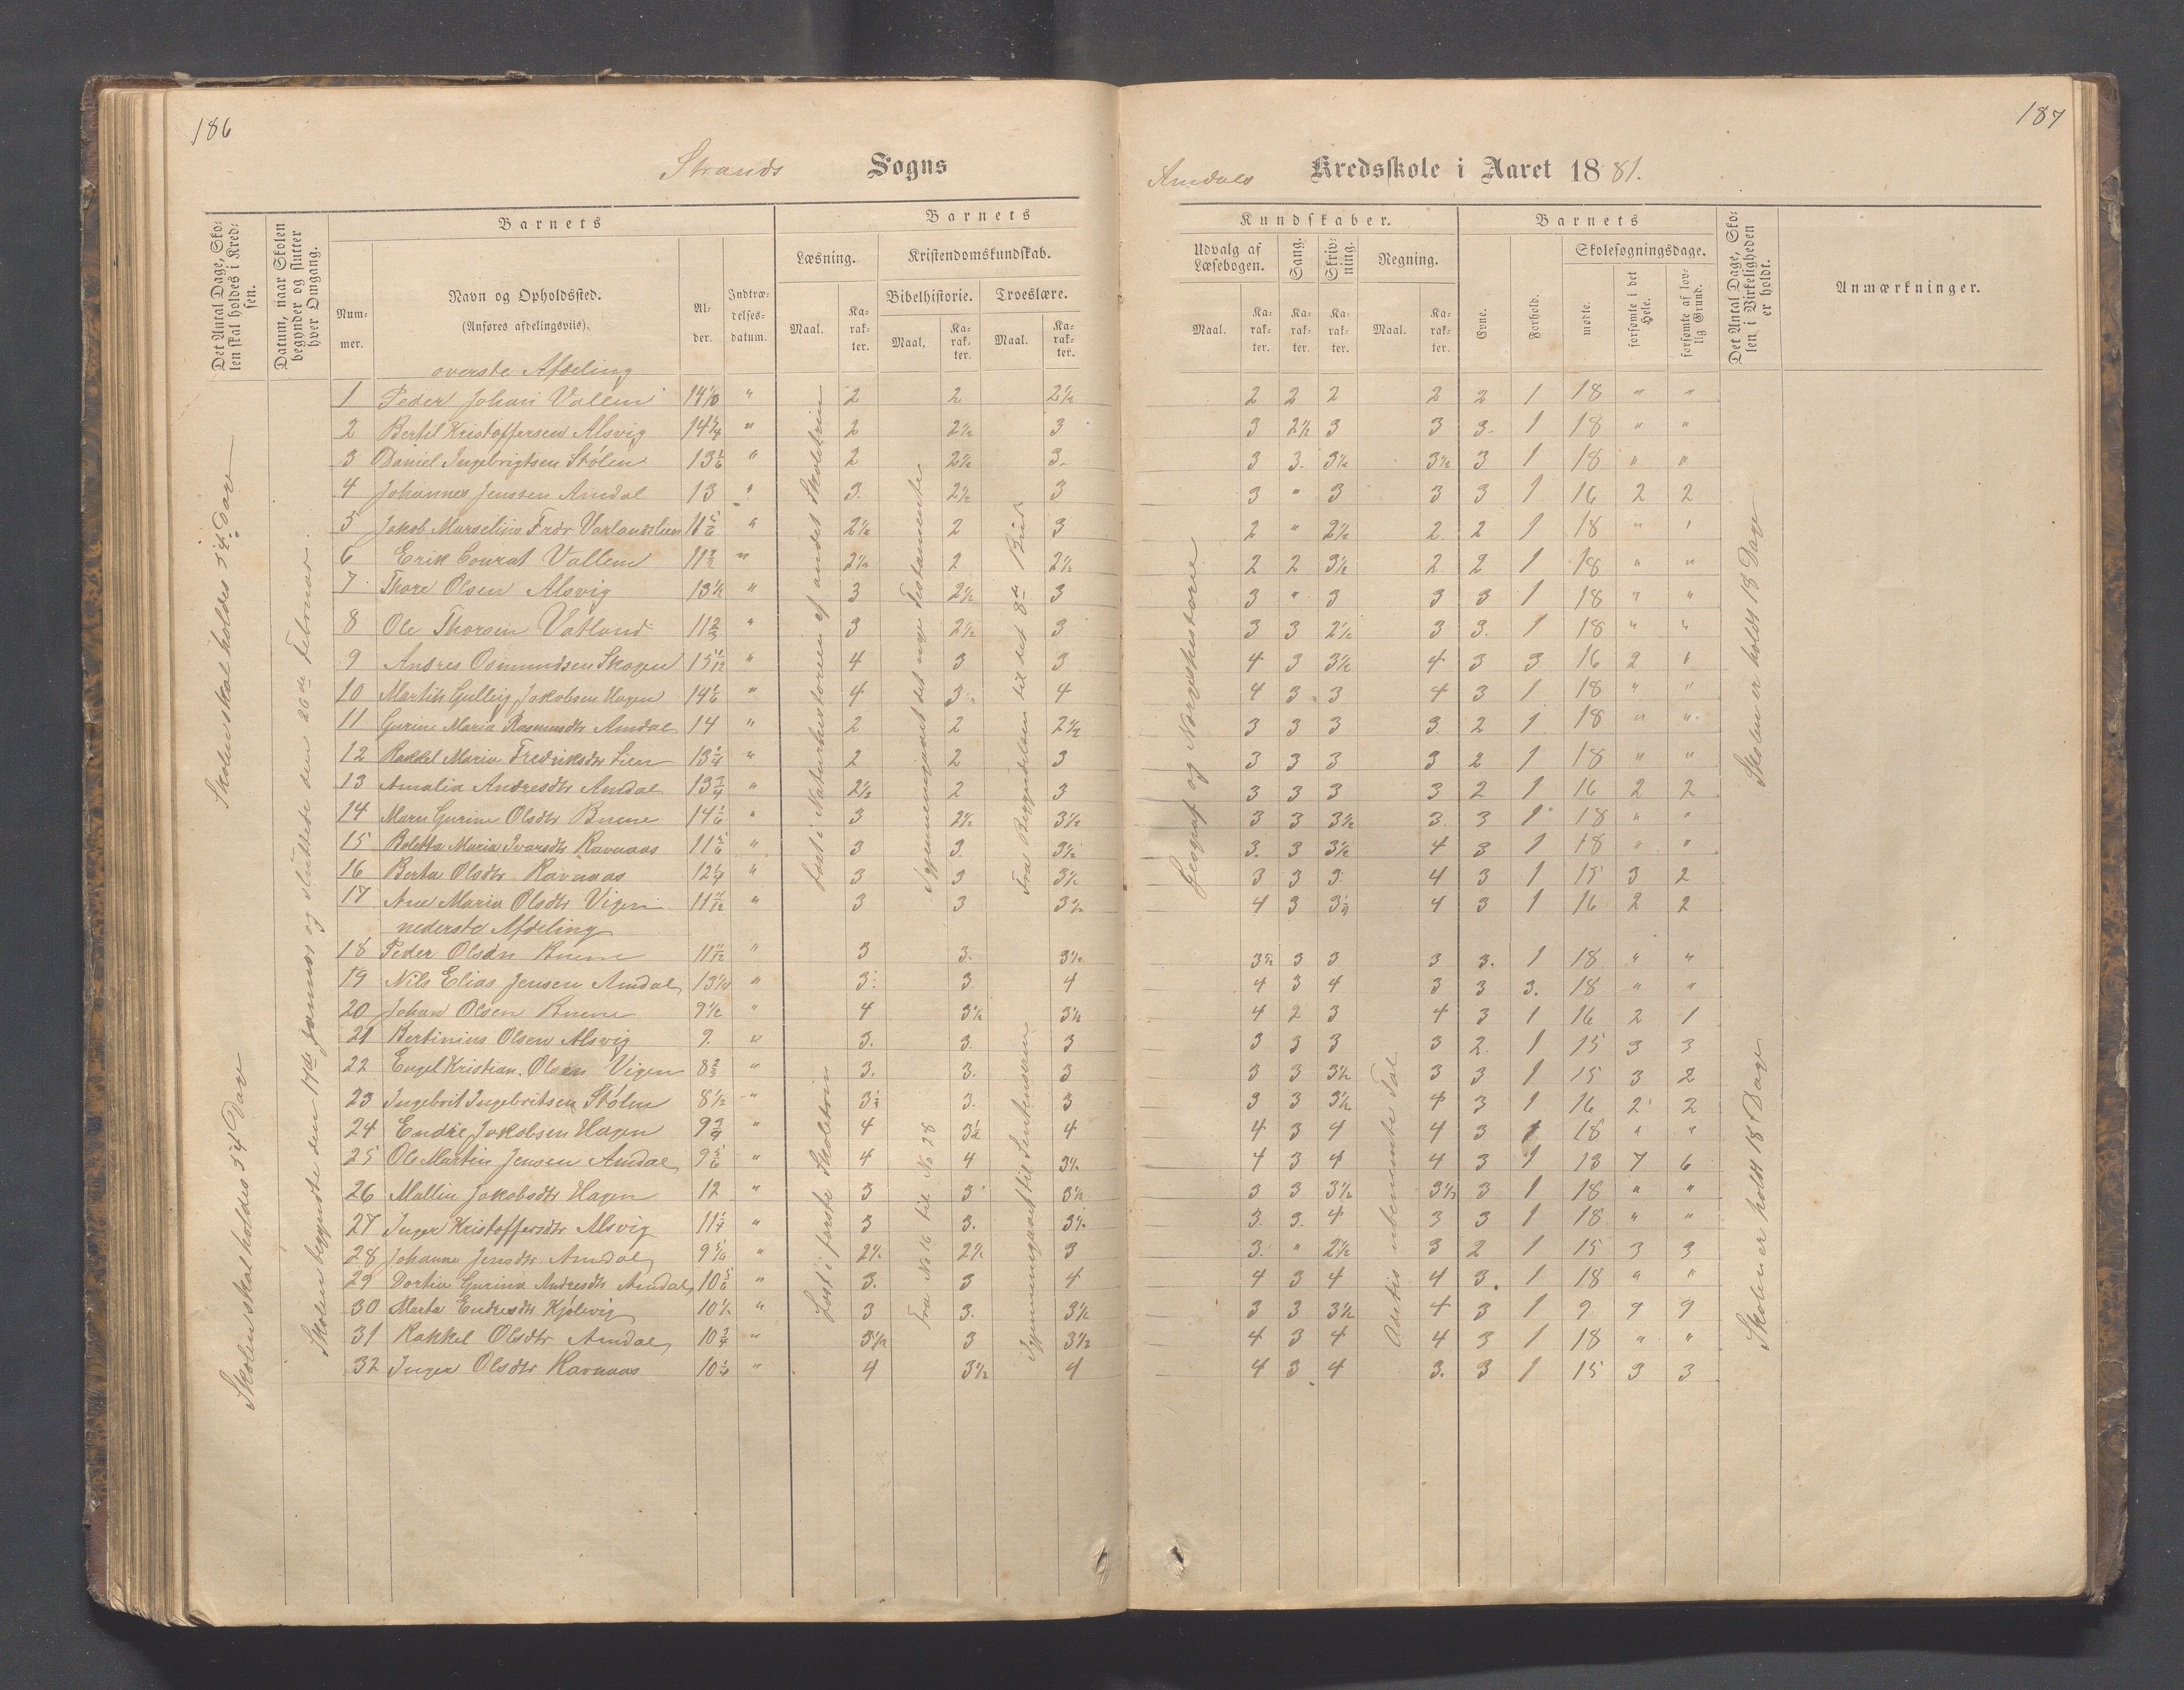 186
187
Strands Sogns
Amdals Kredsskole i Aaret 1881.
Det Antal Dage, Sko-
len skal holdes i Kred-
sen.
Datum, naar Skolen
begynder og slutter
hver Omgang.
Barnets
Num-
mer.
Navn og Opholdssted.
(Anføres afdelingsviis).
Al-
der.
Indtræ-
delses-
datum.
Barnets
Læsning.
Maal.
Ka-
rak-
ter.
Kristendomskundskab.
Bibelhistorie.
Maal.
Ka-
rak-
ter.
Troeslære.
Maal.
Ka-
rak-
ter.
Kundskaber.
Udvalg af
Læsebogen.
Maal.
Ka-
rak-
ter.
Sang.
Ka-
rak-
ter.
Skriv-
ning.
Ka-
rak-
ter.
Regning.
Maal.
Ka-
rak-
ter.
Barnets
Evne.
Forhold.
Skolesøgningsdage.
mødte.
forsømte i det
Hele.
forsømte af lov-
lig Grund.
Det Antal Dage, Sko-
len i Virkeligheden
er holdt.
Anmærkninger.
Skolen skal holdes 54 Dage
Skolen skal holdes 54 Dage
Skolen begyndte den 17de Januar og sluttede den 26de Februar.
Læst i Naturhistorien af andet Skoletrin
Igjennemgaaet det nye Testamente
Fra Begyndelsen til det 8de Bud
Geografi og Norgeshistorie
Skolen er holdt 18 Dage
Læst i første Skoletrin
Fra No 16 til No 28
Igjennemgaaet til Sententserne
ubenævnte Tal
Skolen er holdt 18 Dage
overste Afdeling
1 Peder Johan Vallem 14 1/10 " 2 2 2½ 2 2 2 2 2 1 18 " "
2 Bertil Kristoffersen Alsvig 14¼ " 2 2½ 3 3 2½ 3 3 3. 1 18 " "
3 Daniel Ingebrigtsen Stølen 13 1/6 " 2 2½ 3 3 3. 3½ 3½ 3 1 18 " "
4 Johannes Jenssen Amdal 13 " 3. 2½ 3 3 " 3 3 3 1 16 2 2
5 Jakob Marselius Fredr 11 5/6 " 2½ 2 3 2 " 2½ 2 2 1 18 " "
6 Erik Conrat Vallem 11½ " 2½ 2 2½ 2 2 3½ 2 2 1 18 " "
7 Thore Olsen Alsvig 13½ " 3 2½ 3 3 " 3 3 3 1 18 " "
8 Ole Thorsen Vatland 11 2/3 " 3 2½ 3 3 3 2½ 3 3. 1 18 " "
9 Andres Osmundsen Skogen 13 1/12 " 4 3 3 4 3 3½ 4 3 3 16 2 "
10 Martin Gulleig Jakobsen Hagen 14 1/6 " 4 3 4 4 3 3 4 3 1 18 " "
11 Gurine Maria Rasmusdtr Amdal 14 " 2 2 2½ 3 3 3 3. 2 1 18 " "
12 Rakkel Maria Fredriksdtr Lien 13¼ " 2 2 3 3 3 3 3 2 1 18 " "
13 Amalia Andresdtr Amdal 13¾ " 2½ 2 3 3 3 3 3 2 1 16 2 2
14 Maren Gurine Olsdtr Buene 14 1/6 " 3 2½ 3½ 3 3 3½ 3. 3 1 18 " "
15 Boletta Maria Ivarsdtr Ravnaas 11 5/6 " 3 3. 3½ 3. 3 3½ 4 3 1 18 " "
16 Berta Olsdtr Ravnaas 12¼ " 3 3 3½ 3 3 3 4 3 1 15 3 2
17 Ane Maria Olsdtr Vigen 11 11/12 " 3 3 3½ 4 3 3½ 4 3 1 16 2 2
nederste Afdeling
18 Peder Olsen Buene 11 11/12 " 3 3. 3½ 3½ 3 3 3 3. 1 18 " "
19 Nils Elias Jensen Amdal 13¼ " 3. 3. 4 4 3 4 3 3 3. 18 " "
20 Johan Olsen Buene 9½ " 4 3½ 3½ 4 2 3 4 3 1 16 2 1
21 Bertinius Olsen Alsvig 9. " 3. 3. 3 3 3 3 3 2. 1 15 3 3
22 Engel Kristian Olsen Vigen 8 2/3 " 3. 3. 3 3 3 3½ 3 3 1 15 3 2
23 Ingebrit Ingebritsen Stølen 8½ " 3½ 3. 3 3 3 3½ 4 3 1 16 2 2
24 Endre Jakobsen Hagen 9¾ " 4 3½ 4 4 3 4 4 3 1 18 " "
25 Ole Martin Jensen Amdal 9 5/6 " 4 4 3½ 4 3 4 4 3 1 13 7 6
26 Mallin Jakobsdtr Hagen 12 " 3 3 3½ 3 3 3½ 3½ 3 1 18 " "
27 Inger Kristoffersdtr Alsvig 11¼ " 3 3. 3½ 3. 3. 4 3 3 1 18 " "
28 Johanne Jensdtr Amdal 9 5/6 " 2½ 2½ 3 3. " 2½ 3 2 1 15 3 3
29 Dortia Gurina Andresdtr Amdal 10 5/6 " 3. 3 4 4 3 4 4 3. 1 18 " "
30 Marta Endresdtr Kjølevig 10½ " 3 3. 3½ 3 3 3½ 4 3 1 9 9 9
31 Rakkel Olsdtr Amdal 10¾ " 3½ 3 3½ 4 3 4 4 3 1 18 " "
32 Inger Olsdtr Ravnaas 10¼ " 4 3½ 4 4 3 4 3. 3 1 15 3 3